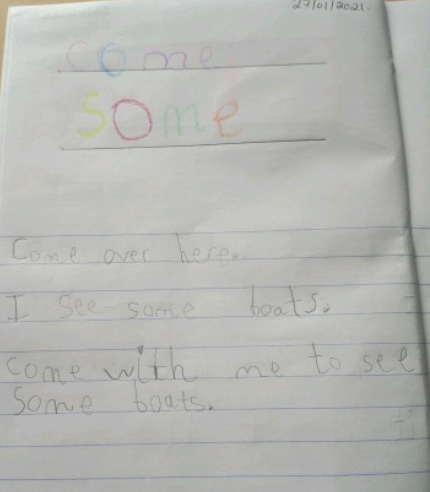 27/01/2021.
come
some
Come over here.
I see some boats.
come with me to see
some boats.